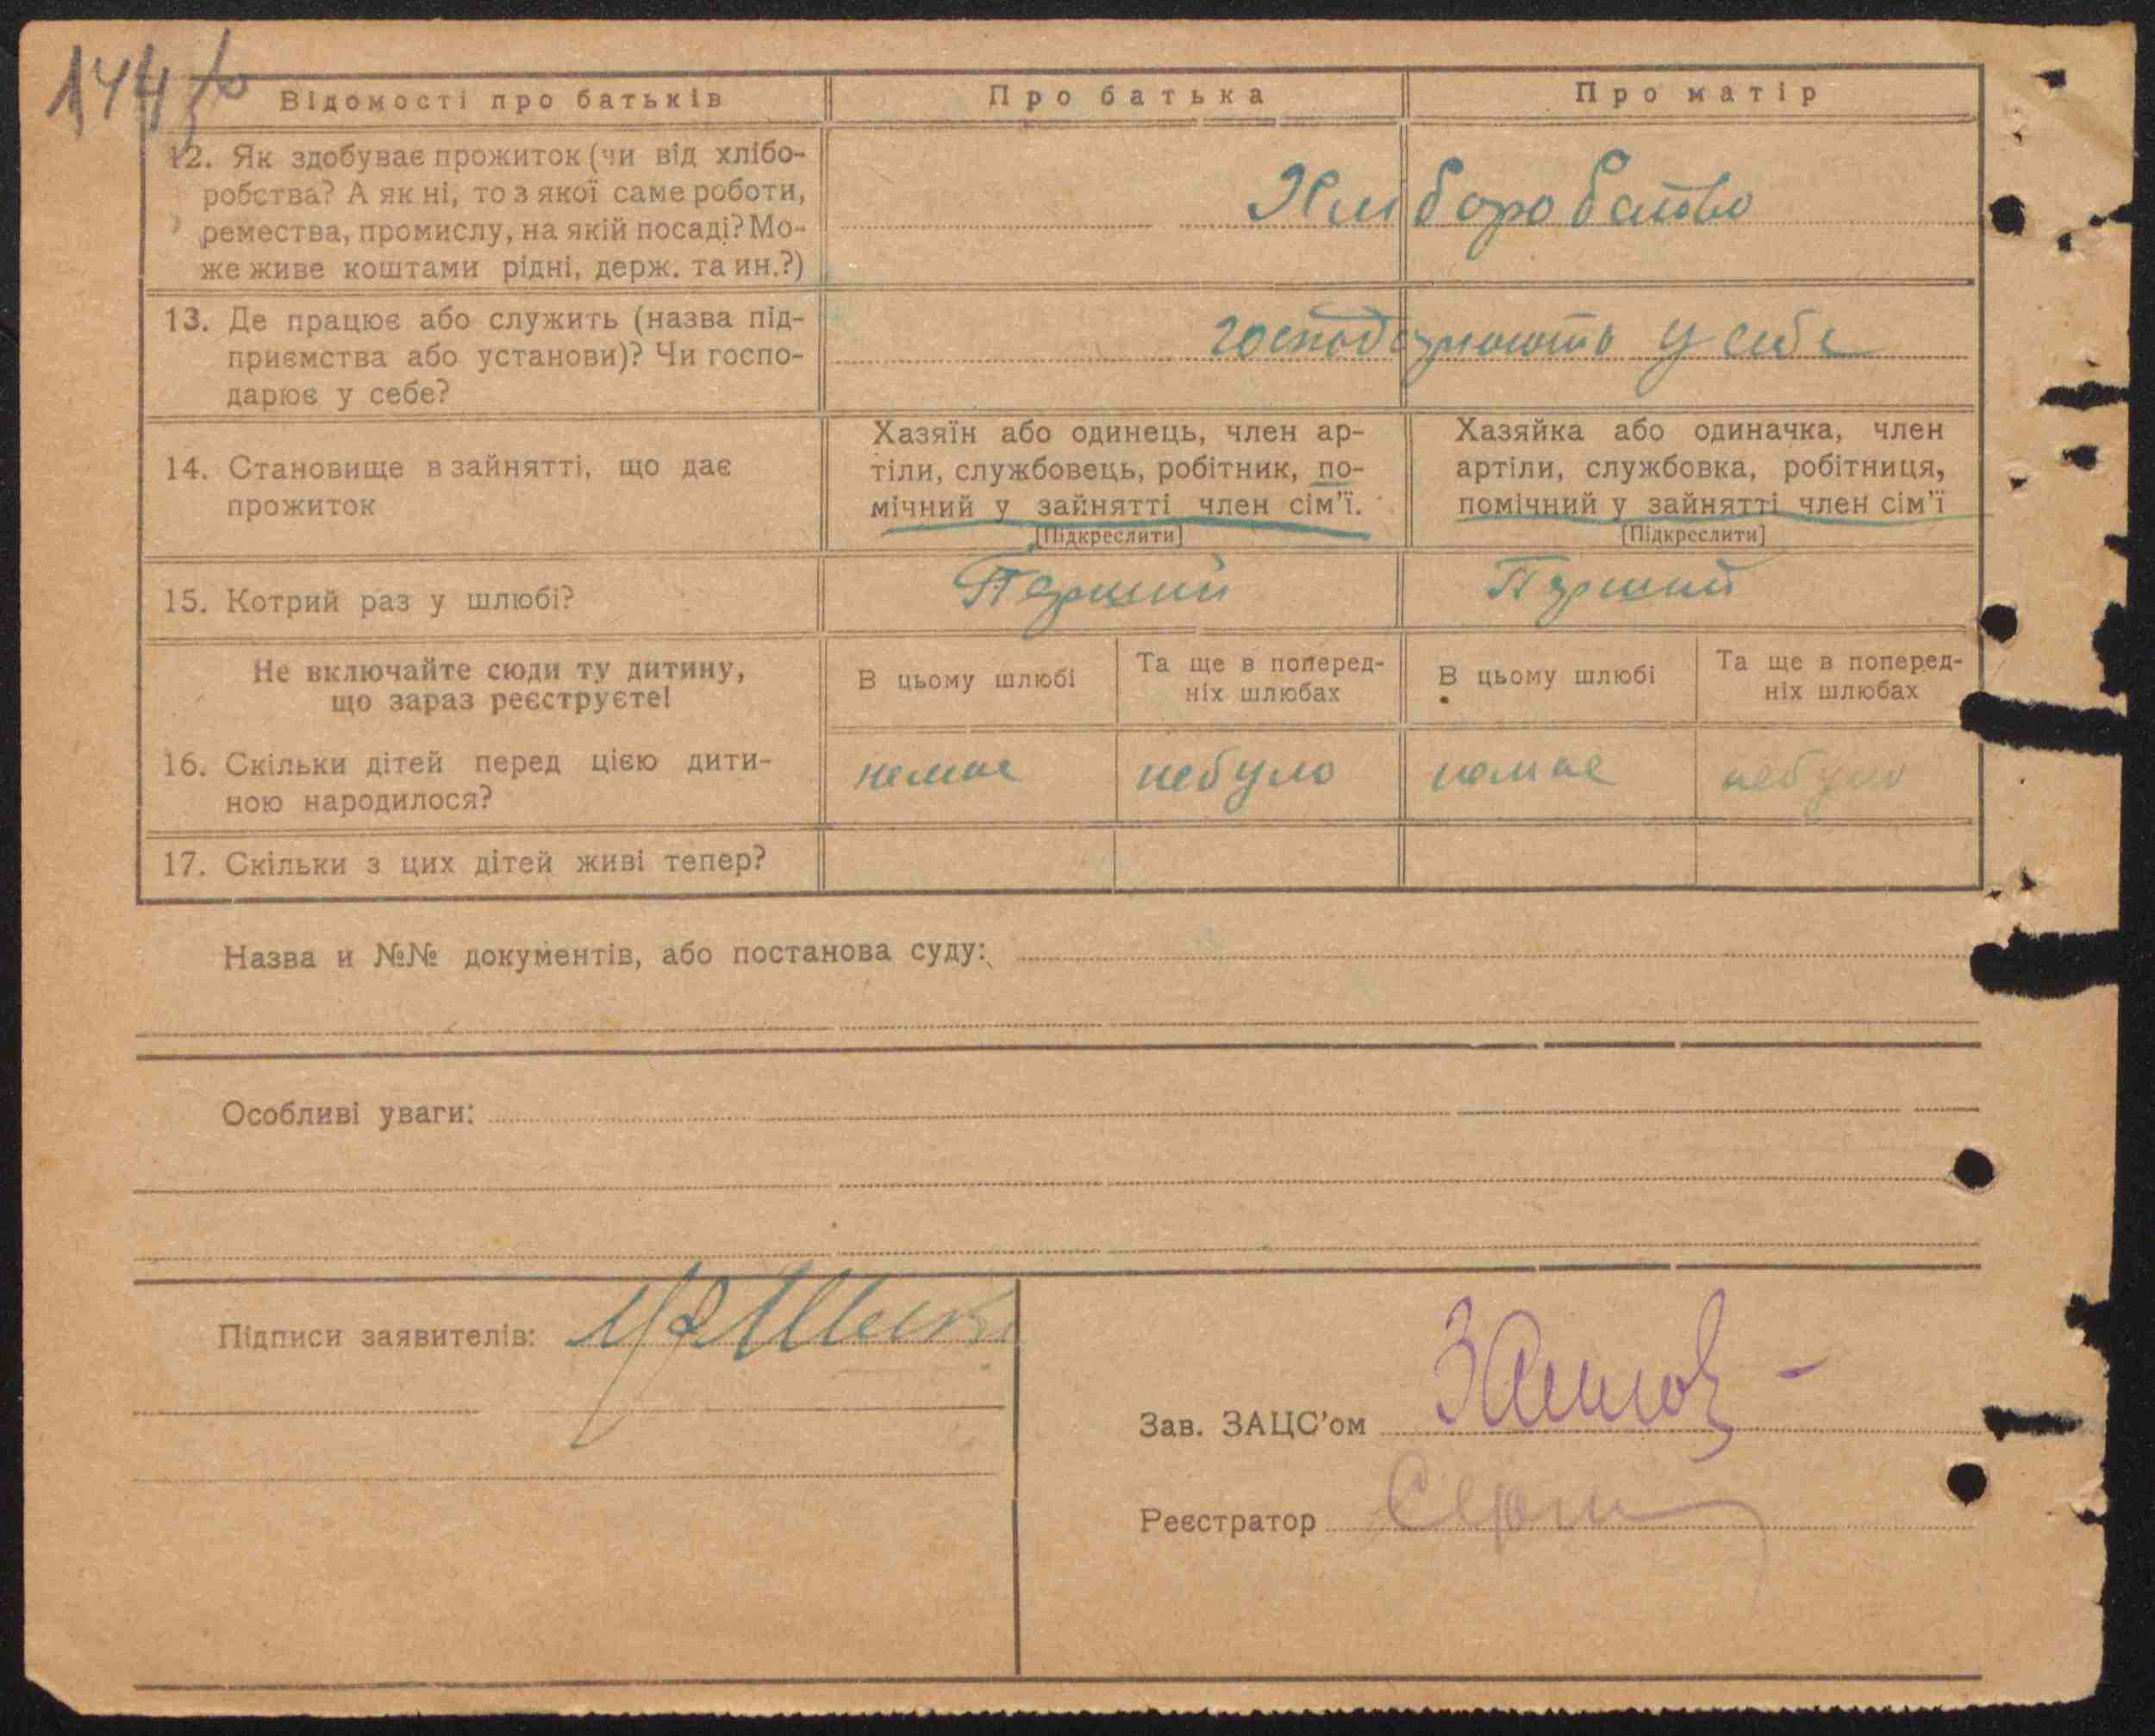 144
Відомості про батьків Про батька Про матір
12. Як здобуває прожиток (чи від хлібо-
робства? А як ні, то з якої саме роботи,
ремества, промислу, на якій посаді? Мо-
же живе коштами рідні, держ. та ин.?)
Хлиборобство
13. Де працює або служить (назва під-
приємства або установи)? Чи госпо-
дарює у себе?
господарюють у себе
14. Становище в зайнятті, що дає
прожиток
Хазяїн або одинець, член ар-
тіли, службовець, робітник, по-
мічний у зайнятті член сім'ї.
[Підкреслити]
Хазяйка або одиначка, член
артіли, службовка, робітниця,
помічний у зайнятті член сім'ї
[Підкреслити]
15. Котрий раз у шлюбі? Перший Перший
Не включайте сюди ту дитину,
що зараз реєструєте!
В цьому шлюбі
Та ще в поперед-
ніх шлюбах
В цьому шлюбі
Та ще в поперед-
ніх шлюбах
16. Скільки дітей перед цією дити-
ною народилося?
немає небуло немає небуло
17. Скільки з цих дітей живі тепер?
Назва и №№ документів, або постанова суду:
Особливі уваги:
Підписи заявителів:
Зав. ЗАЦС'ом
Реєстратор